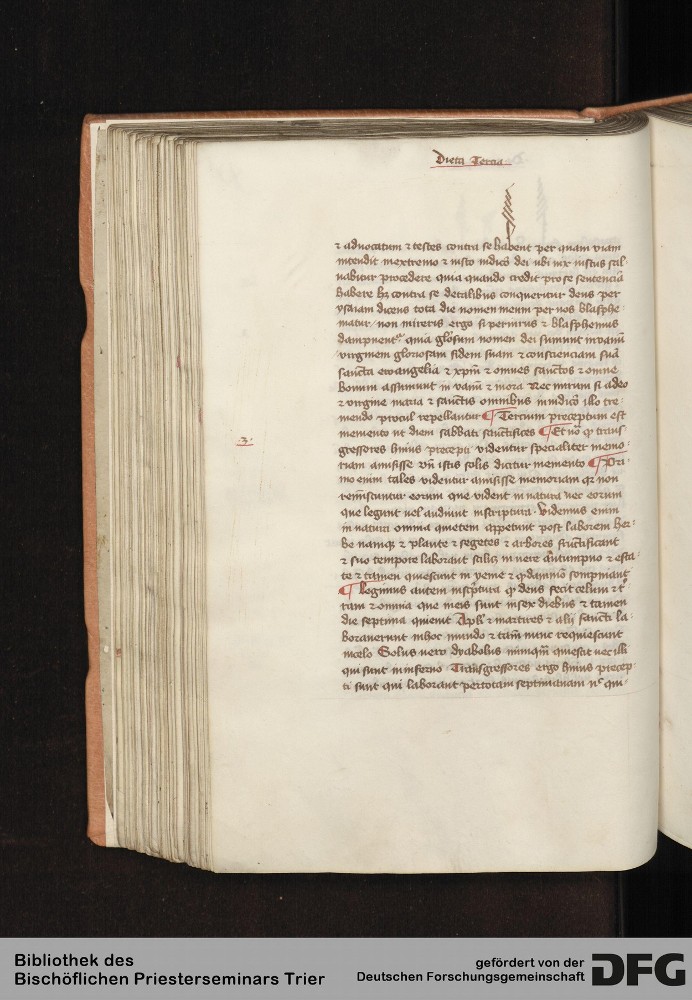 Dieta Tercia
⁊ aduocatum ⁊ testes contra se habent per quam viam
intendit in extremo ⁊ iusto iudicio dei ubi vix iustus sal
uabitur procedere quia quando credit pro se sentencia
habere hꝫ contra se de talibus conqueritur deus per
ysaiam dicens tota die nomen meum per uos blasphe
matur / non mireris ergo si periurus ⁊ blasphemus
dampnent quia glosum nomen dei sumunt in vanū
virginem gloriosam fidem suam ⁊ conscienciam suā
sancta ewangelia ⁊ xpm̄ ⁊ omnes sanctos ⁊ omne
bonum assumunt in vanū ⁊ mora Nec mirum si a deo
⁊ virgine maria ⁊ sanctis omnibus in iudicio illo tre
mendo procul repellantur ¶ Tercium preceptum est
memento ut diem sabbati sanctifices ¶ Et no qꝫ trans
.3.
gressores huius precepti videntur specialiter memo
riam amisisse vn̄ istis solis dicitur memento ¶ Pri
mo enim tales videntur amisisse memoriam qꝛ non
reminiscuntur eorum que vident in natura nec eorum
que legunt uel audiunt in scriptura / Videmus enim
in natura omnia quietem appetunt post laborem her
be namqꝫ ⁊ plante ⁊ segetes ⁊ arbores fructificant
⁊ suo tempore laborant scilicꝫ in vere autumpno ⁊ esta
te ⁊ tamen quiescunt in yeme ⁊
¶ Legimus autem in scptura qꝫ deus fecit celum ⁊ t
ram ⁊ omnia que in eis sunt in sex diebus ⁊ tamen
die septima quieuit Apli ⁊ martires ⁊ alij sancti la
borauerunt in hoc mundo ⁊ tam̄ nunc requiescunt
in celo Solus uero dyabolus nunqm̄ quiescit nec illi
qui sunt in inferno Transgressores ergo huius precep
ti sunt qui laborant per totam septimanam nc̄ qui
Bibliothek des
Bischöflichen Priesterseminars Trier
gefördert von der
Deutschen Forschungsgemeinschaft
DFG